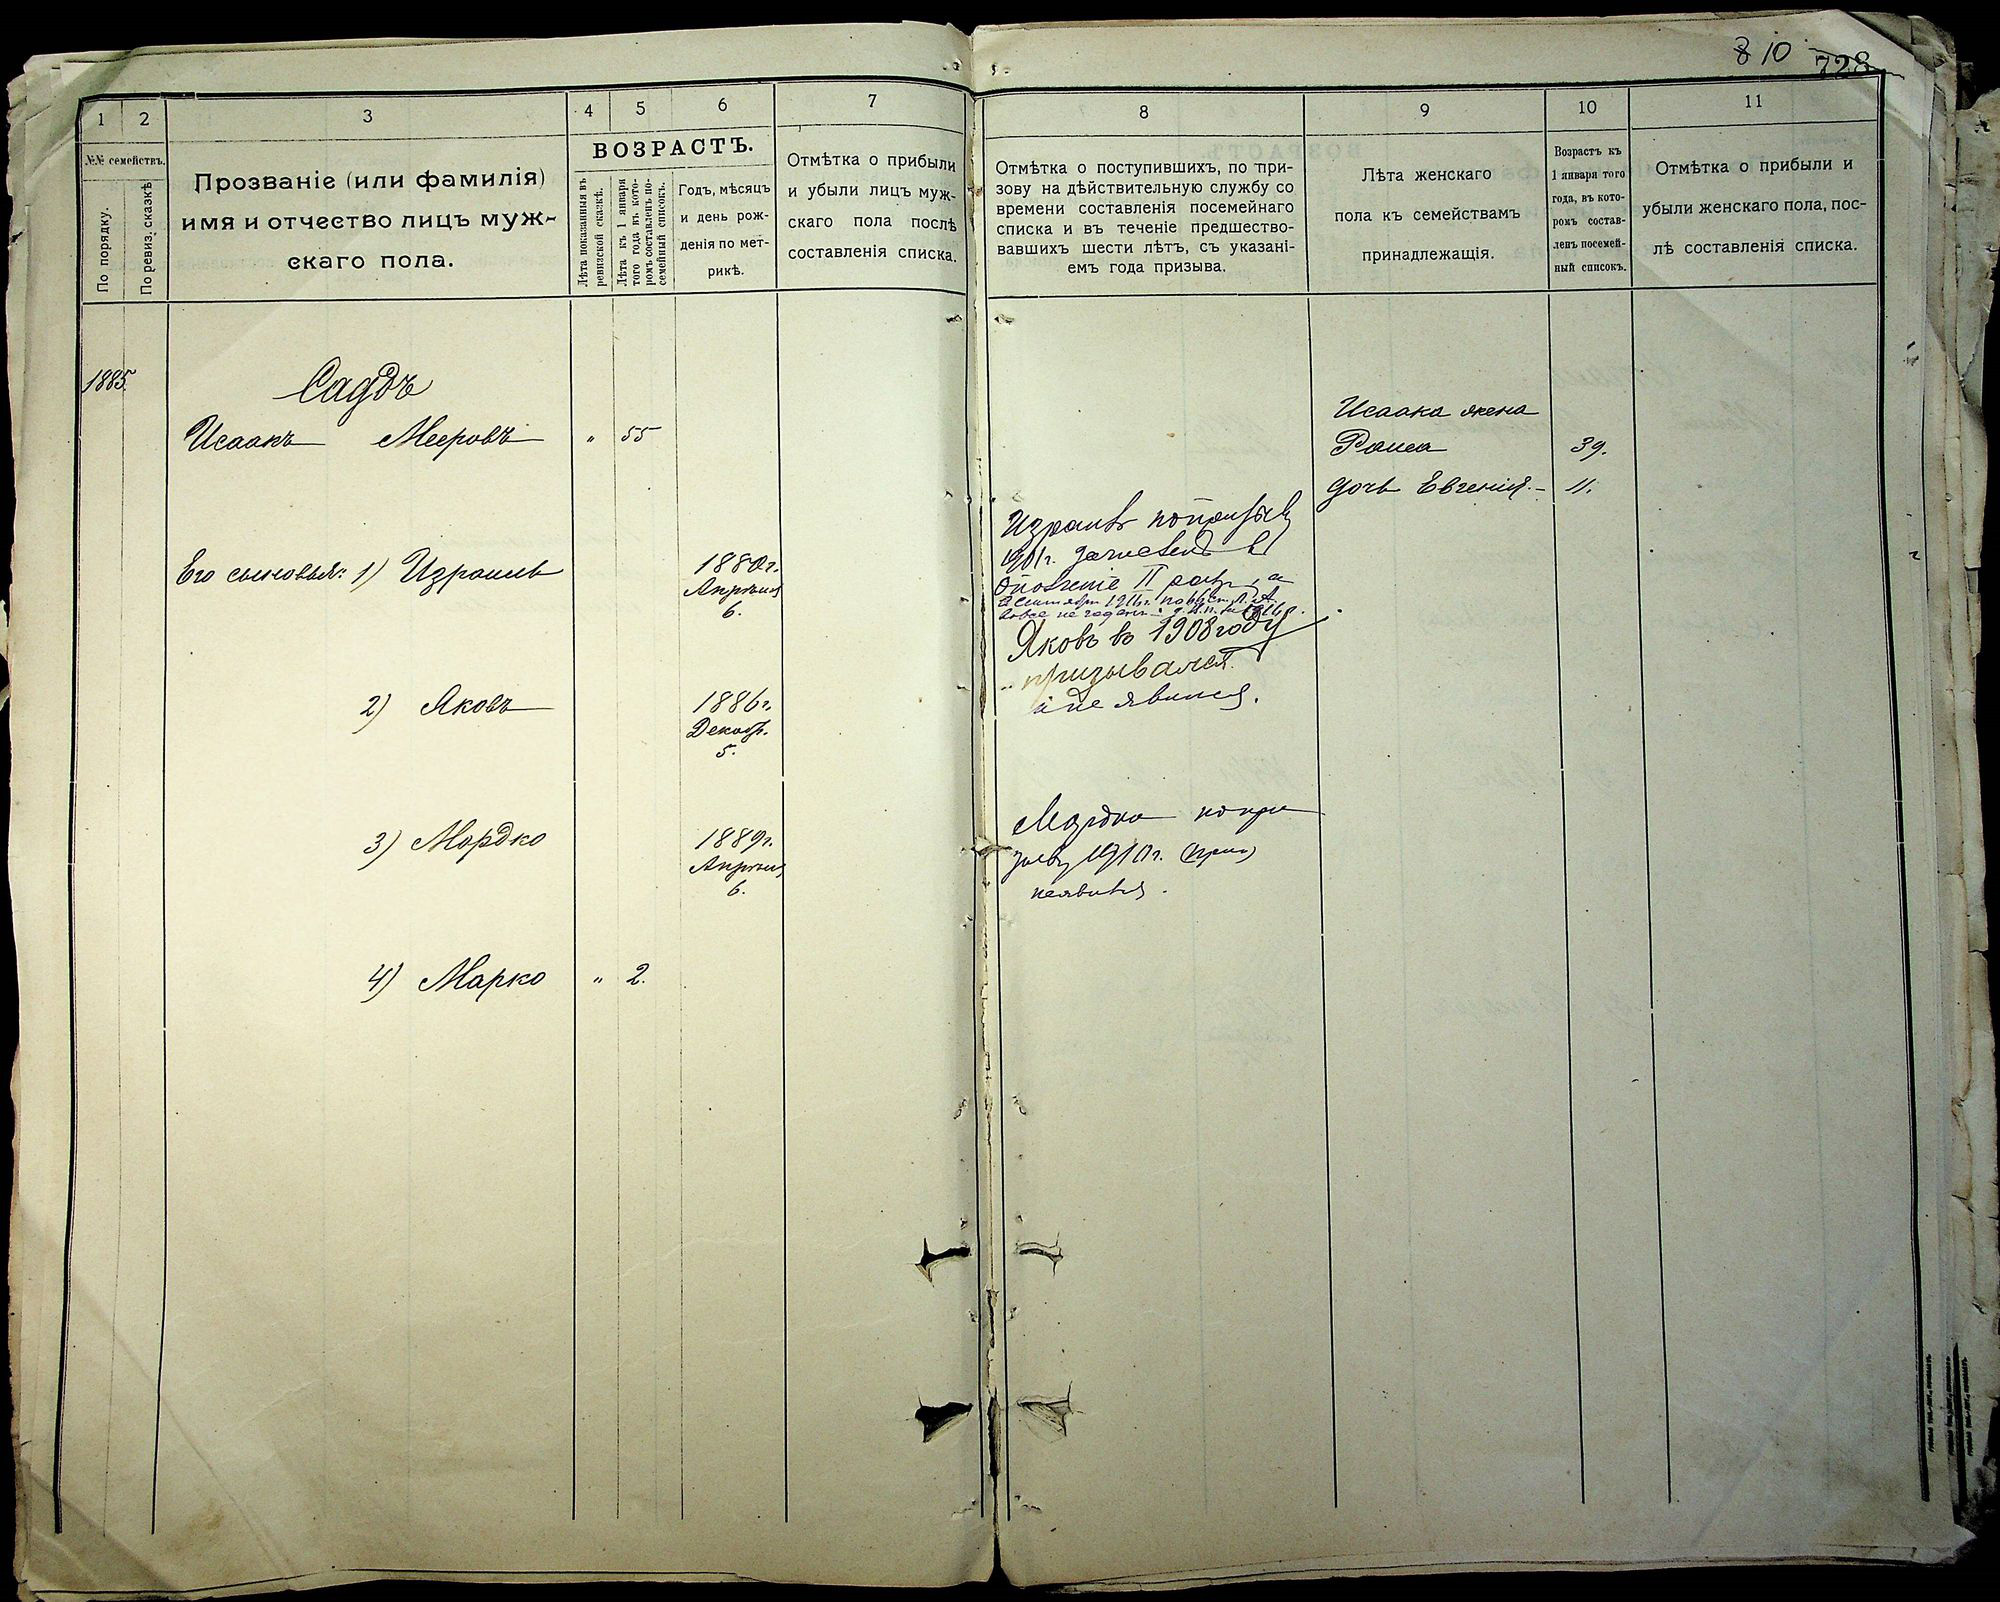 8 10 728
1
2
3
4
5
6
7
8
9
10
11
№№ семействъ.
По порядку.
По ревиз. сказкѣ
Прозваніе (или фамилія)
имя и отчество лицъ муж-
скаго пола.
ВОЗРАСТЪ.
Лѣта показанныя въ
ревизской сказкѣ.
Лѣта къ 1 января
того года въ кото-
ромъ составленъ по-
семейный списокъ.
Годъ, мѣсяцъ
и день рож-
денія по мет-
рикѣ.
Отмѣтка о прибыли
и убыли лицъ муж-
скаго пола послѣ
составленія списка.
Отмѣтка о поступившихъ, по при-
зову на дѣйствительную службу со
времени составленія посемейнаго
списка и въ теченіе предшество-
вавшихъ шести лѣтъ, съ указані-
емъ года призыва.
Лѣта женскаго
пола къ семействамъ
принадлежащія.
Возрастъ къ
1 января того
года, въ кото-
ромъ состав-
ленъ посемей-
ный списокъ.
Отмѣтка о прибыли и
убыли женскаго пола, пос-
лѣ составленія списка.
1885.
Садъ
Исаакъ Мееровъ " 55
Исаака жена
Раиса 39.
дочь Евгенія. 11.
Его сыновья: 1) Израиль
1880г.
Апрѣля
6.
Израиль
1901г. зачисленъ в
ополченіе II разр, а
1916г.
Яковъ въ 1908 году
призывался
и не явился.
2) Яковъ
1886г.
Декабр.
5.
3) Мордко
1889г.
Апрѣля
6.
Мордко по при
зыву 1910г.
неявился.
4) Марко " 2.